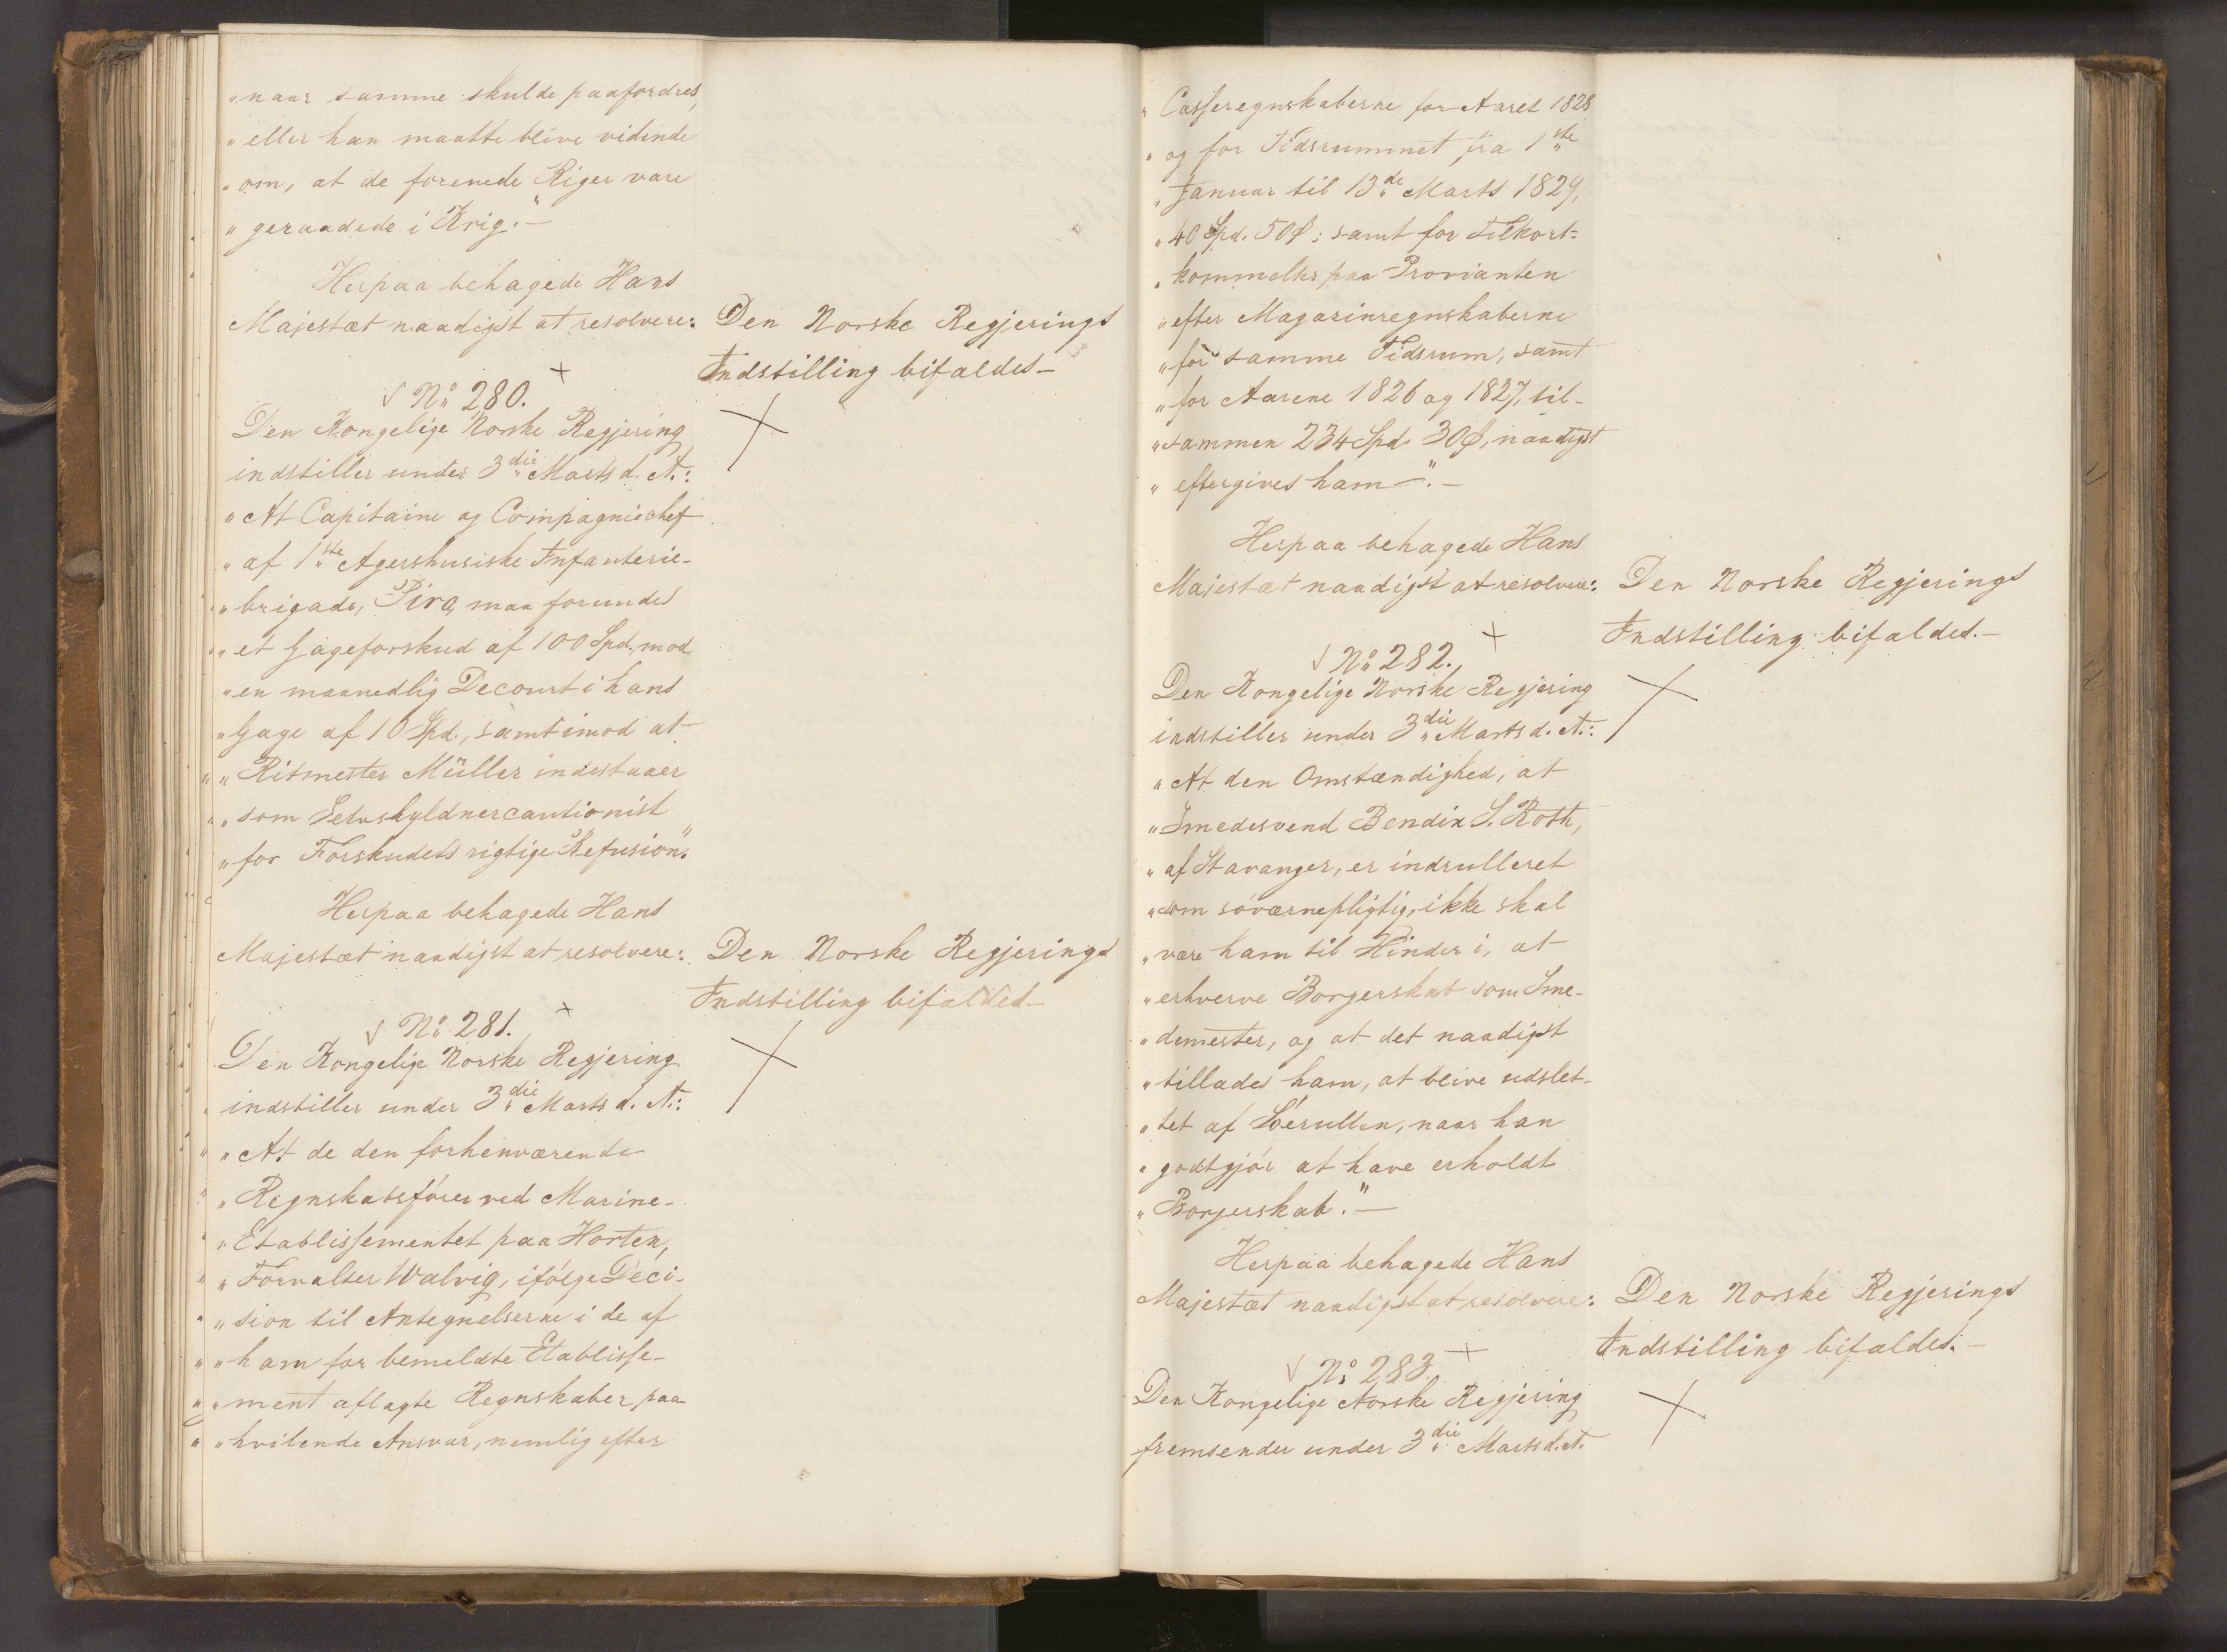 "naar samme skulde paafordres,
"eller han maatte blive vidende
"om, at de forenede Riger vare
"geraadede i Krig."—
Herpaa behagede Hans
Majestæt naadigst at resolvere:
Den Norske Regjerings
Indstilling bifaldes—
√ No 280. +
Den Kongelige Norske Regjering
indstiller under 3die Marts d. A.:
"At Capitaine og Compagniechef
"af 1ste Agershusiske Infanterie-
"brigade, Piro, maa forundes
"et Gageforskud af 100 Spd., mod
"en maanedlig Decourt i hans
"Gage af 10 Spd., samt imod at
"Ritmester Müller indestaaer
"som Selvskyldnercautionist
"for Forskudets rigtige Refusion".
Herpaa behagede Hans
Majestæt naadigst at resolvere:
Den Norske Regjerings
Indstilling bifaldes—
√ No 281. +
Den Kongelige Norske Regjering
indstiller under 3die Marts d. A.:
"At de den forhenværende
"Regnskabsfører ved Marine-
"Etablissementet paa Horten,
"Forvalter Walvig, ifølge Deci-
"sion til Antegnelserne i de af
"ham for bemeldte Etablisse-
"ment aflagte Regnskaber paa-
"hvilende Ansvar, nemlig efter
"Casseregnskaberne for Aaret 1828
"og for Tidsrummet fra 1ste
"Januar til 13de Marts 1829,
"40 Spd. 50 β; samt for Tilkort-
"kommelser paa Provianten
"efter Magazinregnskaberne
"for samme Tidsrum, samt
"for Aarene 1826 og 1827, til-
"sammen 234 Spd. 30 β, naadigst
"eftergives ham—".—
Herpaa behagede Hans
Majestæt naadigst at resolvere:
Den Norske Regjerings
Indstilling bifaldes.—
√ No 282. +
Den Kongelige Norske Regjering
indstiller under 3die Marts d. A.:
"At den Omstændighed, at
"Smedesvend Bendix S. Roth,
"af Stavanger, er indrulleret
"som søværnepligtig, ikke skal
"være ham til Hinder i, at
"erhverve Borgerskab som Sme-
"demester, og at det naadigst
"tillades ham, at blive udslet-
"tet af Søerullen, naar han
"godtgjør at have erholdt
"Borgerskab."—
Herpaa behagede Hans
Majestæt naadigst at resolvere:
Den Norske Regjerings
Indstilling bifaldes.—
√ No 283. +
Den Kongelige Norske Regjering
fremsender under 3die Marts d. A.